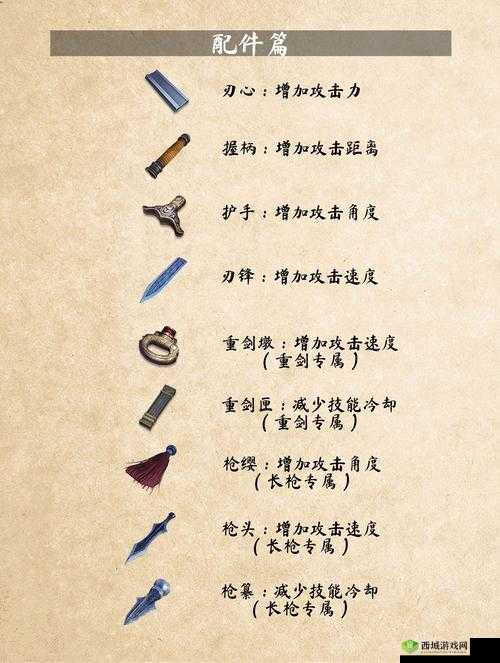 配件篇
刃心：增加攻击力
握柄：增加攻击距离
护手：增加攻击角度
刃锋：增加攻击速度
重剑墩：增加攻击速度
（重剑专属）
重剑匣：减少技能冷却
（重剑专属）
枪缨：增加攻击角度
（长枪专属）
枪头：增加攻击速度
（长枪专属）
枪纂：减少技能冷却
（长枪专属）
西城游戏网